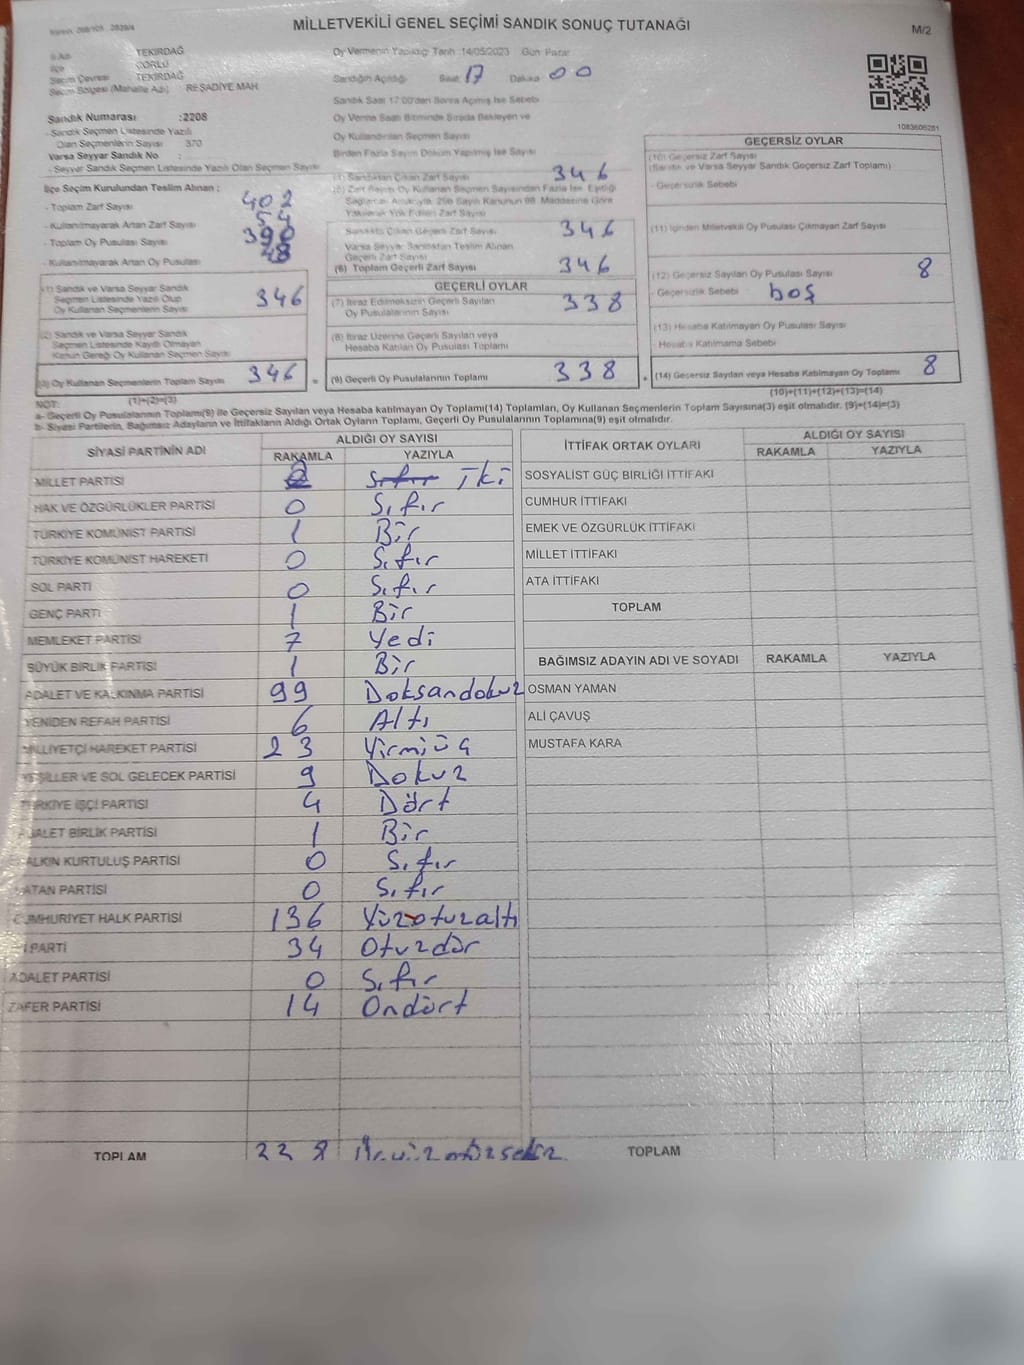 MİLLETVEKİLİ GENEL SEÇİMİ SANDIK SONUÇ TUTANAĞI
M/2
TEKİRDAĞ
İlçe ÇORLU
Seçim Çevresi TEKİRDAĞ
Seçim Bölgesi (Mahalle Adı) REŞADİYE MAH.
Oy Vermenin Yapıldığı Tarih :14/05/2023 Gün Pazar
Sandığın Açıldığı Saat 17 Dakika 00
Sandık Saat 17:00'dan Sonra Açılmış İse Sebebi
Oy Verme Saati Bitiminde Sırada Bekleyen ve
Oy Kullandırılan Seçmen Sayısı
Birden Fazla Sayım Döküm Yapılmış İse Sayısı
Sandık Numarası :2208
- Sandık Seçmen Listesinde Yazılı
Olan Seçmenlerin Sayısı 370
Varsa Seyyar Sandık No :
- Seyyar Sandık Seçmen Listesinde Yazılı Olan Seçmen Sayısı
İlçe Seçim Kurulundan Teslim Alınan :
- Toplam Zarf Sayısı 402
- Kullanılmayarak Artan Zarf Sayısı 54
- Toplam Oy Pusulası Sayısı 390
- Kullanılmayarak Artan Oy Pusulası 48
(1) Sandık ve Varsa Seyyar Sandık
Seçmen Listesinde Yazılı Olup
Oy Kullanan Seçmenlerin Sayısı 346
(2) Sandık ve Varsa Seyyar Sandık
Seçmen Listesinde Kayıtlı Olmayan
Kanun Gereği Oy Kullanan Seçmen Sayısı
(3) Oy Kullanan Seçmenlerin Toplam Sayısı 346
(1)+(2)=(3)
(4) Sandıktan Çıkan Zarf Sayısı 346
(5) Zarf Sayısı Oy Kullanan Seçmen Sayısından Fazla İse, Eşitliği
Sağlamak Amacıyla, 298 Sayılı Kanunun 98. Maddesine Göre
Yakılarak Yok Edilen Zarf Sayısı
Sandıkta Çıkan Geçerli Zarf Sayısı 346
Varsa Seyyar Sandıktan Teslim Alınan
Geçerli Zarf Sayısı
(6) Toplam Geçerli Zarf Sayısı 346
GEÇERLİ OYLAR
(7) İtiraz Edilmeksizin Geçerli Sayılan
Oy Pusulalarının Sayısı 338
(8) İtiraz Üzerine Geçerli Sayılan veya
Hesaba Katılan Oy Pusulası Toplamı
= (9) Geçerli Oy Pusulalarının Toplamı 338
1083606281
GEÇERSİZ OYLAR
(10) Geçersiz Zarf Sayısı
(Sandık ve Varsa Seyyar Sandık Geçersiz Zarf Toplamı)
- Geçersizlik Sebebi
(11) İçinden Milletvekili Oy Pusulası Çıkmayan Zarf Sayısı
(12) Geçersiz Sayılan Oy Pusulası Sayısı 8
- Geçersizlik Sebebi boş
(13) Hesaba Katılmayan Oy Pusulası Sayısı
- Hesaba Katılmama Sebebi
+ (14) Geçersiz Sayılan veya Hesaba Katılmayan Oy Toplamı 8
(10)+(11)+(12)+(13)=(14)
NOT:
a- Geçerli Oy Pusulalarının Toplamı(9) ile Geçersiz Sayılan veya Hesaba katılmayan Oy Toplamı(14) Toplamları, Oy Kullanan Seçmenlerin Toplam Sayısına(3) eşit olmalıdır. (9)+(14)=(3)
b- Siyasi Partilerin, Bağımsız Adayların ve İttifakların Aldığı Ortak Oyların Toplamı, Geçerli Oy Pusulalarının Toplamına(9) eşit olmalıdır.
SİYASİ PARTİNİN ADI ALDIĞI OY SAYISI
RAKAMLA YAZIYLA
MİLLET PARTİSİ 2 Sıfır İki
HAK VE ÖZGÜRLÜKLER PARTİSİ 0 Sıfır
TÜRKİYE KOMÜNİST PARTİSİ 1 Bir
TÜRKİYE KOMÜNİST HAREKETİ 0 Sıfır
SOL PARTİ 0 Sıfır
GENÇ PARTİ 1 Bir
MEMLEKET PARTİSİ 7 Yedi
BÜYÜK BİRLİK PARTİSİ 1 Bir
ADALET VE KALKINMA PARTİSİ 99 Doksandokuz
YENİDEN REFAH PARTİSİ 6 Altı
MİLLİYETÇİ HAREKET PARTİSİ 23 Yirmiüç
YEŞİLLER VE SOL GELECEK PARTİSİ 9 Dokuz
TÜRKİYE İŞÇİ PARTİSİ 4 Dört
ADALET BİRLİK PARTİSİ 1 Bir
HALKIN KURTULUŞ PARTİSİ 0 Sıfır
VATAN PARTİSİ 0 Sıfır
CUMHURİYET HALK PARTİSİ 136 Yüzotuzaltı
İYİ PARTİ 34 Otuzdör
ADALET PARTİSİ 0 Sıfır
ZAFER PARTİSİ 14 Ondört
TOPLAM 338 Üçyüzotuzsekiz
İTTİFAK ORTAK OYLARI ALDIĞI OY SAYISI
RAKAMLA YAZIYLA
SOSYALİST GÜÇ BİRLİĞİ İTTİFAKI
CUMHUR İTTİFAKI
EMEK VE ÖZGÜRLÜK İTTİFAKI
MİLLET İTTİFAKI
ATA İTTİFAKI
TOPLAM
BAĞIMSIZ ADAYIN ADI VE SOYADI RAKAMLA YAZIYLA
OSMAN YAMAN
ALİ ÇAVUŞ
MUSTAFA KARA
TOPLAM